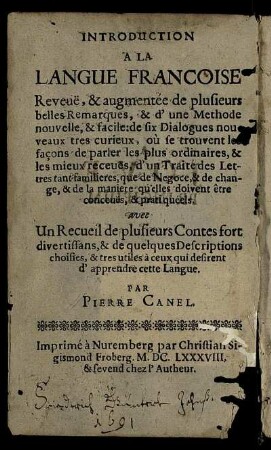 INTRODUCTION
A LA
LANGUE FRANCOISE
Reveuë, & augmentée de plusieurs
belles Remarques, & d'une Methode
nouvelle, & facile: de six Dialogues nou-
veaux tres curieux, où se trouvent les
façons de parler les plus ordinaires, &
les mieux receues, d'un Traité des Let-
tres tant familieres, que de Negoce, & de chan-
ge, & de la maniere qu'elles doivent être
conceues, & pratiquées.
avec
Un Recueil de plusieurs Contes fort
divertissans, & de quelques Descriptions
choisies, & tres utiles à ceux qui desirent
d'apprendre cette Langue.
PAR
PIERRE CANEL.
Imprimé à Nuremberg par Christian Si-
gismond Froberg. M. DC. LXXXVIII.
& se vend chez l'Autheur.
1691